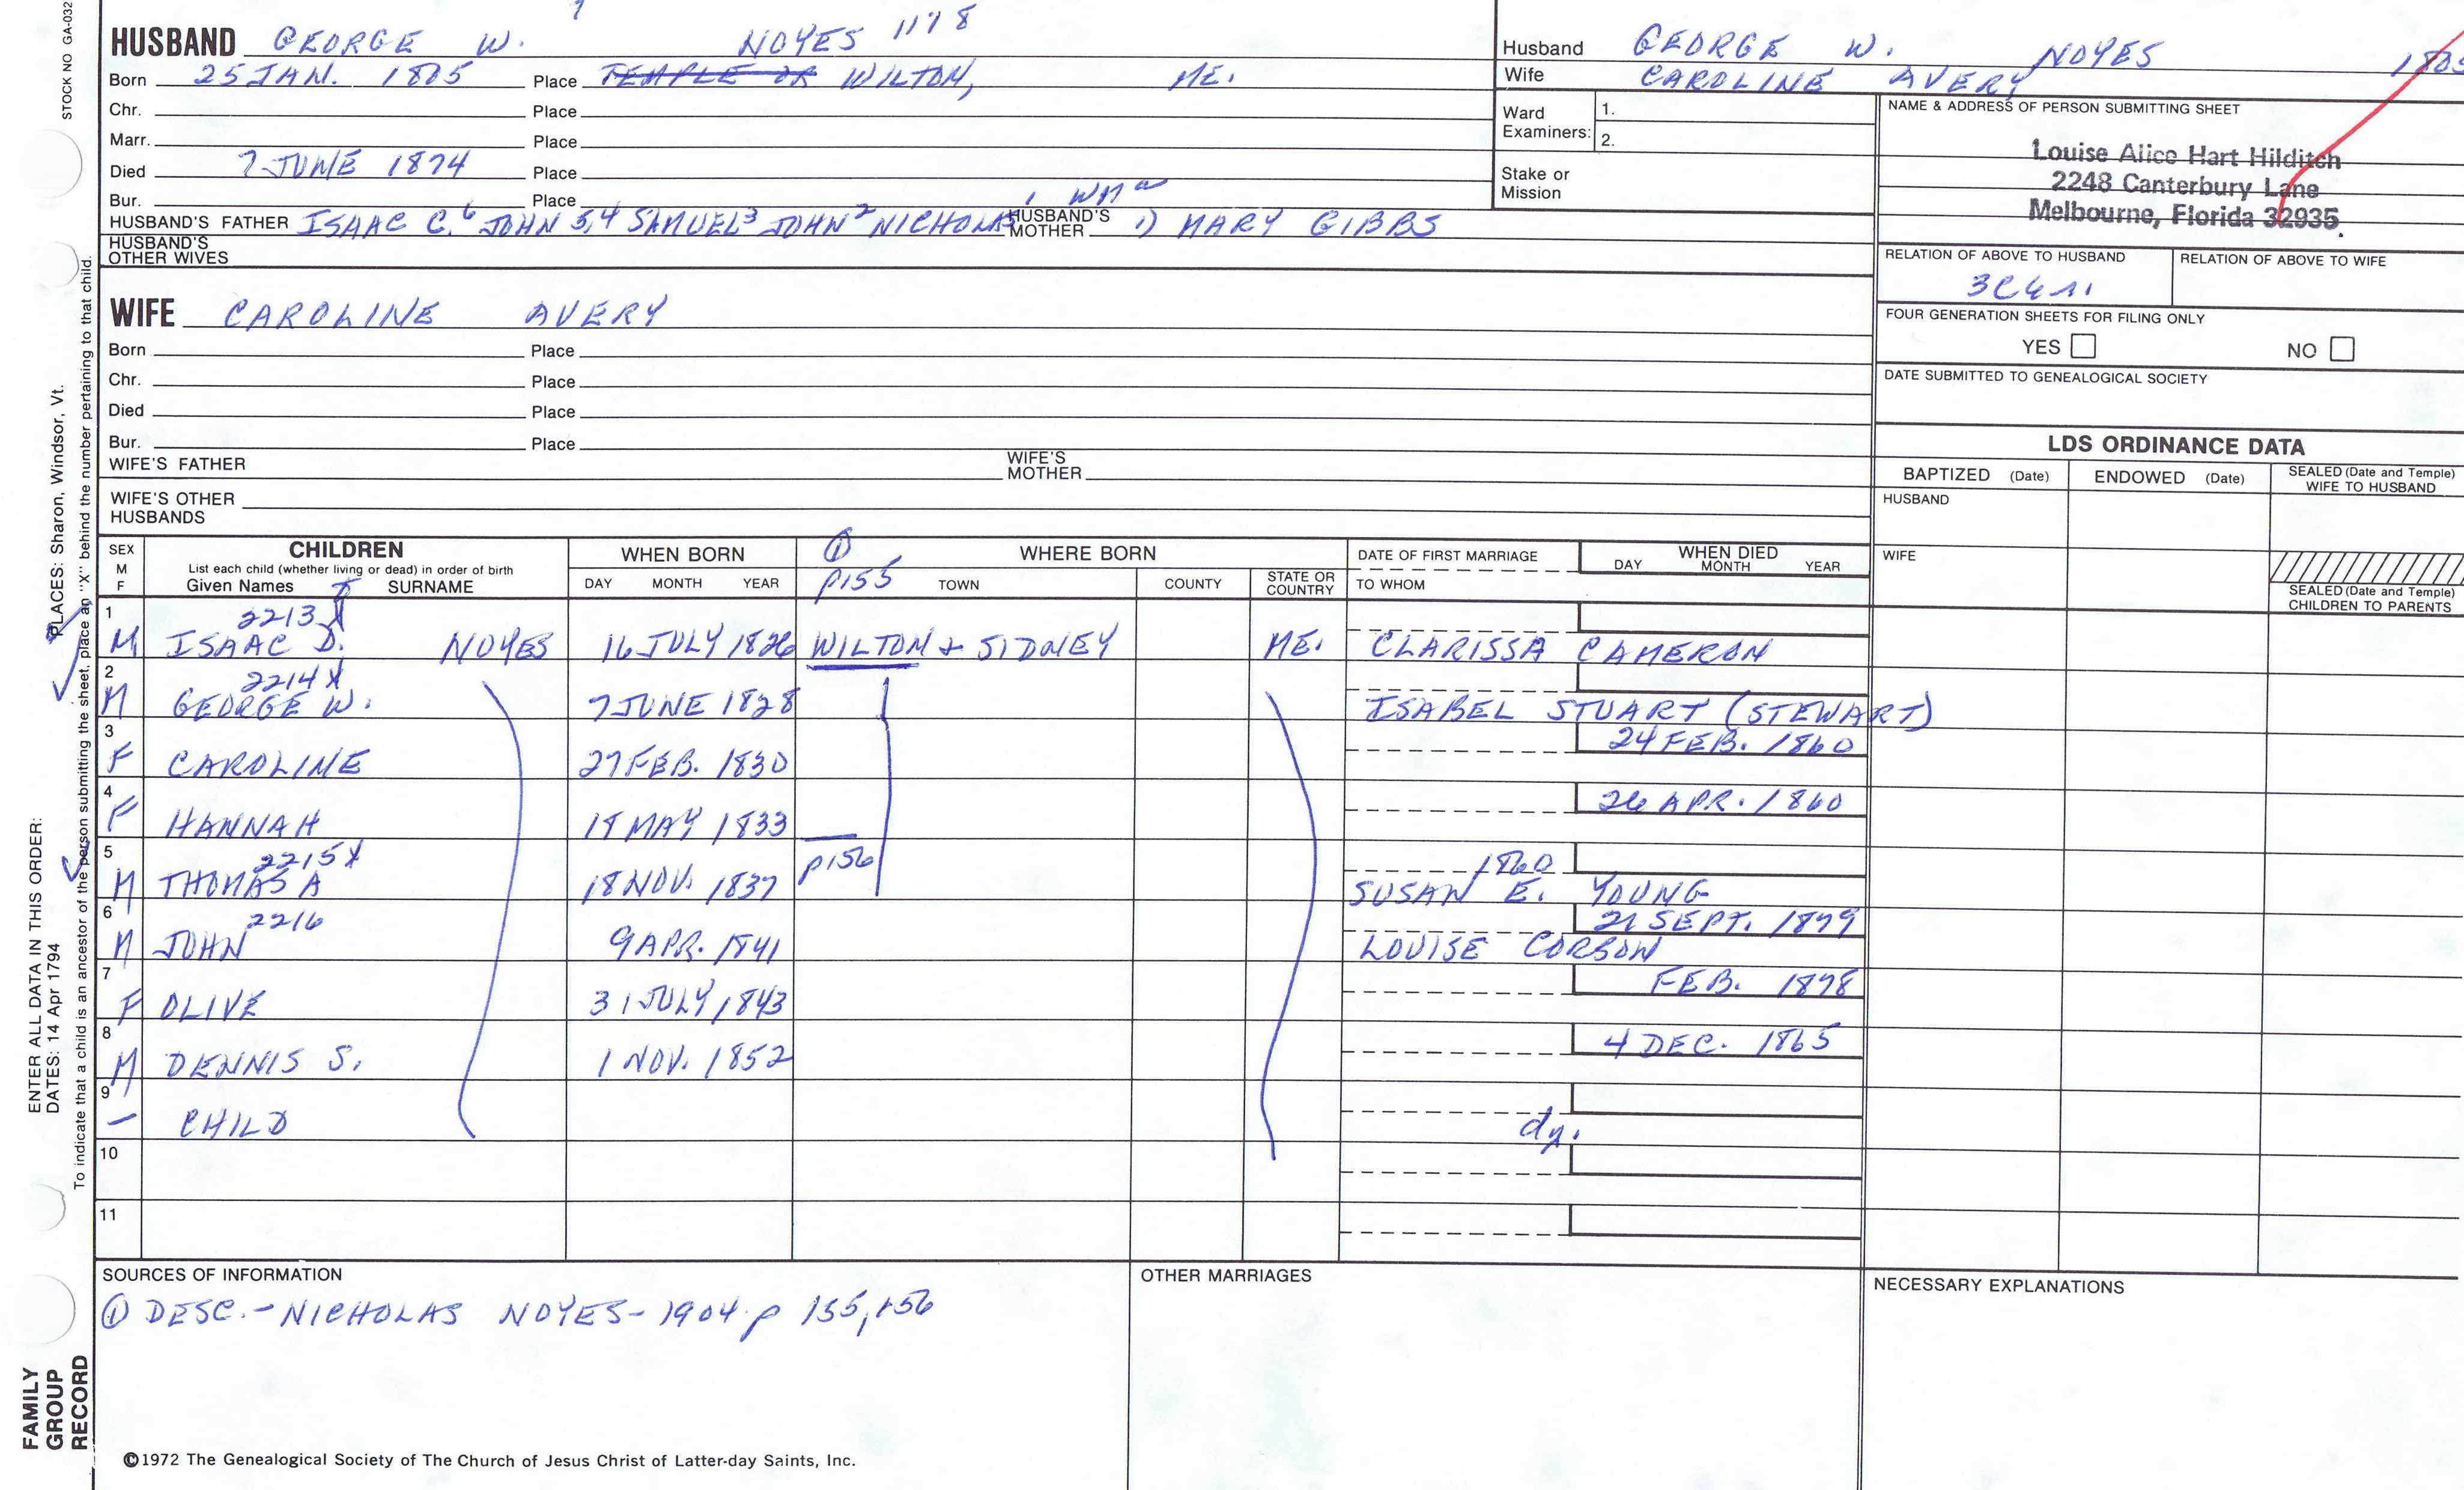 STOCK NO GA-032
HUSBAND GEORGE W. NOYES 1178
Born 25 JAN. 1805 Place TEMPLE OR WILTON, ME.
Chr. Place
Marr. Place
Died 7 JUNE 1874 Place
Bur. Place
HUSBAND'S FATHER ISAAC C.6 JOHN 5,4 SAMUEL3 JOHN2 NICHOLAS1 HUSBAND'S MOTHER 1) MARY GIBBS
HUSBAND'S OTHER WIVES
Husband GEORGE W. NOYES
Wife CAROLINE AVERY
Ward Examiners: 1.
2.
Stake or Mission
NAME & ADDRESS OF PERSON SUBMITTING SHEET
Louise Alice Hart Hilditch
2248 Canterbury Lane
Melbourne, Florida 32935.
RELATION OF ABOVE TO HUSBAND
RELATION OF ABOVE TO WIFE
FOUR GENERATION SHEETS FOR FILING ONLY
YES NO
DATE SUBMITTED TO GENEALOGICAL SOCIETY
WIFE CAROLINE AVERY
Born Place
Chr. Place
Died Place
Bur. Place
WIFE'S FATHER WIFE'S MOTHER
WIFE'S OTHER HUSBANDS
LDS ORDINANCE DATA
BAPTIZED (Date) ENDOWED (Date) SEALED (Date and Temple) WIFE TO HUSBAND
HUSBAND
WIFE
SEALED (Date and Temple) CHILDREN TO PARENTS
SEX M F
CHILDREN
List each child (whether living or dead) in order of birth
Given Names SURNAME
WHEN BORN
DAY MONTH YEAR
① p155
WHERE BORN
TOWN COUNTY STATE OR COUNTRY
DATE OF FIRST MARRIAGE
TO WHOM
WHEN DIED
DAY MONTH YEAR
1 2213 X
M ISAAC D. NOYES 16 JULY 1826 WILTON + SIDNEY ME. CLARISSA CAMERON
2 2214 X
M GEORGE W. 7 JUNE 1828 ISABEL STUART (STEWART)
3 24 FEB. 1860
F CAROLINE 27 FEB. 1830
4 26 APR. 1860
F HANNAH 18 MAY 1833
5 2215 X p156 1860
M THOMAS A 18 NOV. 1837 SUSAN E. YOUNG
6 2216 21 SEPT. 1879
M JOHN 9 APR. 1841 LOUISE CORSON
7 FEB. 1878
F OLIVE 31 JULY 1843
8 4 DEC. 1865
M DENNIS S. 1 NOV. 1852
9
- CHILD dy.
10
11
SOURCES OF INFORMATION
① DESC. - NICHOLAS NOYES - 1904 p 155,156
OTHER MARRIAGES
NECESSARY EXPLANATIONS
©1972 The Genealogical Society of The Church of Jesus Christ of Latter-day Saints, Inc.
FAMILY GROUP RECORD
ENTER ALL DATA IN THIS ORDER:
DATES: 14 Apr 1794
PLACES: Sharon, Windsor, Vt.
To indicate that a child is an ancestor of the person submitting the sheet, place an "X" behind the number pertaining to that child.